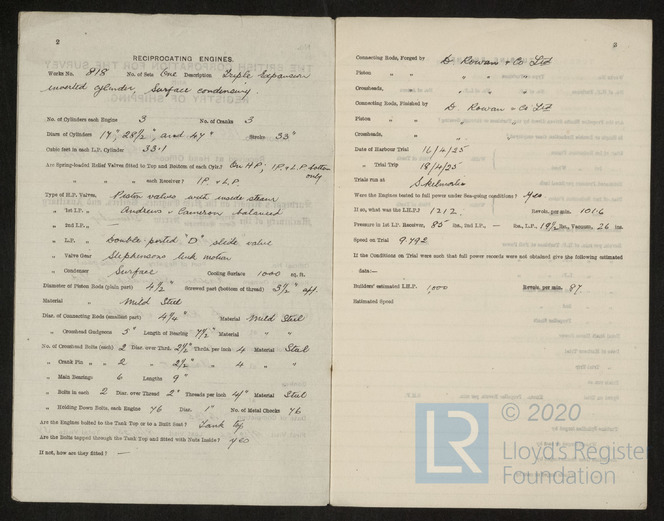 2
RECIPROCATING ENGINES.
Works No. 818 No. of Sets One Description Triple Expansion
inverted cylinder, Surface condensing.
No. of Cylinders each Engine 3 No. of Cranks 3
Diars of Cylinders 17", 28½", and 47" Stroke 33"
Cubic feet in each L.P. Cylinder 33·1
Are Spring-loaded Relief Valves fitted to Top and Bottom of each Cylr.? On H.P., I.P. & L.P. bottom only
„ „ „ each Receiver? I.P. & L.P.
Type of H.P. Valves, Piston valves with inside steam
„ 1st I.P. „ Andrews & Cameron balanced
„ 2nd I.P. „ —
„ L.P. „ Double ported "D" slide valve
„ Valve Gear Stephensons link motion
„ Condenser Surface Cooling Surface 1000 sq. ft.
Diameter of Piston Rods (plain part) 4½" Screwed part (bottom of thread) 3½"
Material „ Mild Steel
Diar. of Connecting Rods (smallest part) 4¼" Material Mild Steel
„ Crosshead Gudgeons 5" Length of Bearing 7½" Material „ „
No. of Crosshead Bolts (each) 2 Diar. over Thrd. 2½" Thrds. per inch 4 Material Steel
„ Crank Pin „ „ 2 „ 2¾" „ 4 „ „
„ Main Bearings 6 Lengths 9"
„ Bolts in each 2 Diar. over Thread 2" Threads per inch 4½" Material Steel
„ Holding Down Bolts, each Engine 76 Diar. 1" No. of Metal Chocks 76
Are the Engines bolted to the Tank Top or to a Built Seat? Tank top
Are the Bolts tapped through the Tank Top and fitted with Nuts Inside? yes
If not, how are they fitted? —
3
Connecting Rods, Forged by D. Rowan & Co Ltd
Piston „ „
Crossheads, „
Connecting Rods, Finished by D. Rowan & Co Ltd
Piston „ „
Crossheads, „
Date of Harbour Trial 16/4/25
„ Trial Trip 18/4/25
Trials run at Skelmorlie
Were the Engines tested to full power under Sea-going conditions? yes
If so, what was the I.H.P.? 1212. Revols. per min. 101·6
Pressure in 1st I.P. Receiver, 85 lbs., 2nd I.P., — lbs., L.P., lbs., Vacuum, 26 ins.
Speed on Trial 9·792
If the Conditions on Trial were such that full power records were not obtained give the following estimated
data:—
Builders' estimated I.H.P. 1,000 Revols. per min. 87.
Estimated Speed
LR © 2020
Lloyd's Register
Foundation